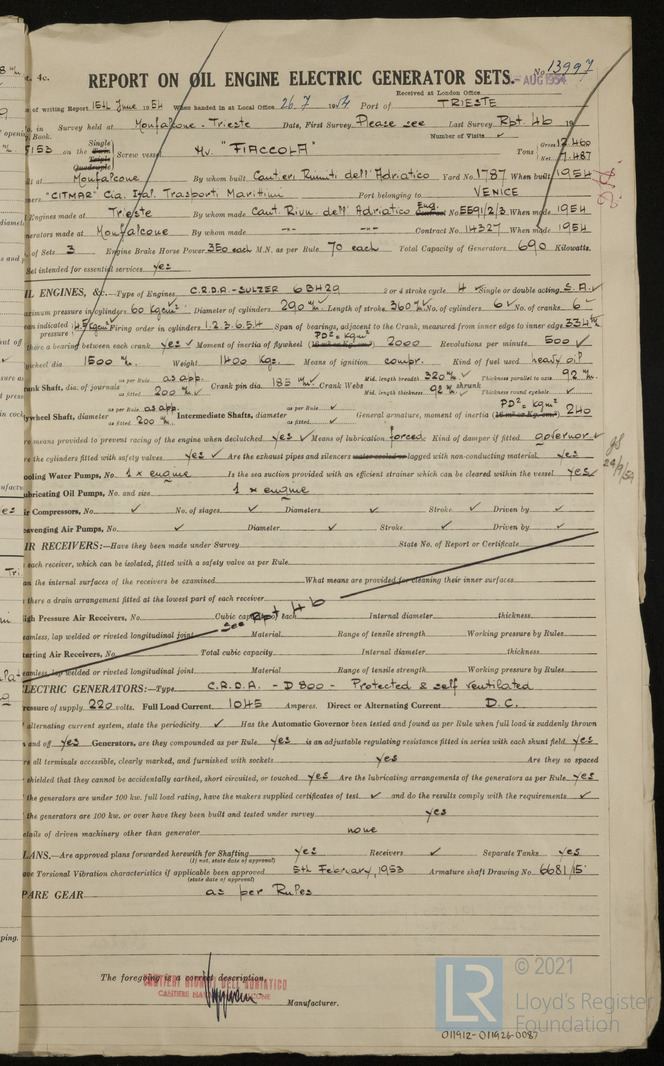 t. 4c.
REPORT ON OIL ENGINE ELECTRIC GENERATOR SETS.
No. 13997
Received at London Office
-AUG 1954
of writing Report 15th June 1954 When handed in at Local Office 26.7.1954 Port of TRIESTE
o. in Survey held at Monfalcone - Trieste Date, First Survey Please see Last Survey Rpt. 4b 19
Book. Number of Visits ✓
5153 on the Single Twin Triple Quadruple Screw vessel Mv. "FIACCOLA" Tons Gross 12.460 Net 7.487
lt at Monfalcone By whom built Cantieri Riuniti dell'Adriatico Yard No. 1787 When built 1954
ners "CITMAR" Cia. Ital. Trasporti Marittimi Port belonging to VENICE
l Engines made at Trieste By whom made Cant. Riun. dell'Adriatico Eng. Contract No. 5591/2/3 When made 1954
nerators made at Monfalcone By whom made -"- -"- Contract No. 14327 When made 1954
o. of Sets 3 Engine Brake Horse Power 350 each M.N. as per Rule 70 each Total Capacity of Generators 690 Kilowatts.
Set intended for essential services yes
IL ENGINES, &c.—Type of Engines C.R.D.A. - SULZER 6BH29 2 or 4 stroke cycle 4 Single or double acting S.A.
aximum pressure in cylinders 60 Kg/cm² Diameter of cylinders 290 m/m Length of stroke 360 m/m No. of cylinders 6 No. of cranks 6
ean indicated pressure Firing order in cylinders 1.2.3.6.5.4 Span of bearings, adjacent to the Crank, measured from inner edge to inner edge 334 m/m
there a bearing between each crank yes Moment of inertia of flywheel PD² = Kgm² 2000 Revolutions per minute 500
wheel dia 1500 m/m Weight 1400 Kgs. Means of ignition compr. Kind of fuel used heavy oil
rank Shaft, dia. of journals as per Rule as app. as fitted 200 m/m Crank pin dia. 185 m/m Crank Webs Mid. length breadth 320 m/m Mid. length thickness 92 m/m shrunk Thickness parallel to axis 92 m/m Thickness round eyehole ✓
lywheel Shaft, diameter as per Rule as app. as fitted 200 m/m Intermediate Shafts, diameter as per Rule ✓ as fitted ✓ General armature, moment of inertia PD² = Kgm² 240
re means provided to prevent racing of the engine when declutched yes Means of lubrication forced Kind of damper if fitted governor
re the cylinders fitted with safety valves yes Are the exhaust pipes and silencers water cooled or lagged with non-conducting material yes
ooling Water Pumps, No. 1 x engine Is the sea suction provided with an efficient strainer which can be cleared within the vessel yes
ubricating Oil Pumps, No. and size 1 x engine
ir Compressors, No. ✓ No. of stages ✓ Diameters ✓ Stroke ✓ Driven by ✓
cavenging Air Pumps, No. ✓ Diameter ✓ Stroke ✓ Driven by ✓
IR RECEIVERS:—Have they been made under Survey State No. of Report or Certificate
each receiver, which can be isolated, fitted with a safety valve as per Rule
an the internal surfaces of the receivers be examined What means are provided for cleaning their inner surfaces
there a drain arrangement fitted at the lowest part of each receiver
igh Pressure Air Receivers, No. Cubic capacity of each Internal diameter thickness
see Rpt. 4b
eamless, lap welded or riveted longitudinal joint Material Range of tensile strength Working pressure by Rules
tarting Air Receivers, No. Total cubic capacity Internal diameter thickness
eamless, lap welded or riveted longitudinal joint Material Range of tensile strength Working pressure by Rules
LECTRIC GENERATORS:—Type C.R.D.A. - D800 - Protected & self ventilated
ressure of supply 220 volts. Full Load Current 1045 Amperes. Direct or Alternating Current D.C.
alternating current system, state the periodicity ✓ Has the Automatic Governor been tested and found as per Rule when full load is suddenly thrown
and off yes Generators, are they compounded as per Rule yes is an adjustable regulating resistance fitted in series with each shunt field yes
re all terminals accessible, clearly marked, and furnished with sockets yes Are they so spaced
shielded that they cannot be accidentally earthed, short circuited, or touched yes Are the lubricating arrangements of the generators as per Rule yes
the generators are under 100 kw. full load rating, have the makers supplied certificates of test ✓ and do the results comply with the requirements ✓
the generators are 100 kw. or over have they been built and tested under survey yes
etails of driven machinery other than generator none
LANS.—Are approved plans forwarded herewith for Shafting yes Receivers ✓ Separate Tanks yes
(If not, state date of approval)
ave Torsional Vibration characteristics if applicable been approved 5th February, 1953 Armature shaft Drawing No. 6681/15
(state date of approval)
PARE GEAR as per Rules
The foregoing is a correct description,
CANTIERI RIUNITI DELL'ADRIATICO
Manufacturer.
© 2021
LR
Lloyd's Register
Foundation
011912-011926-0087